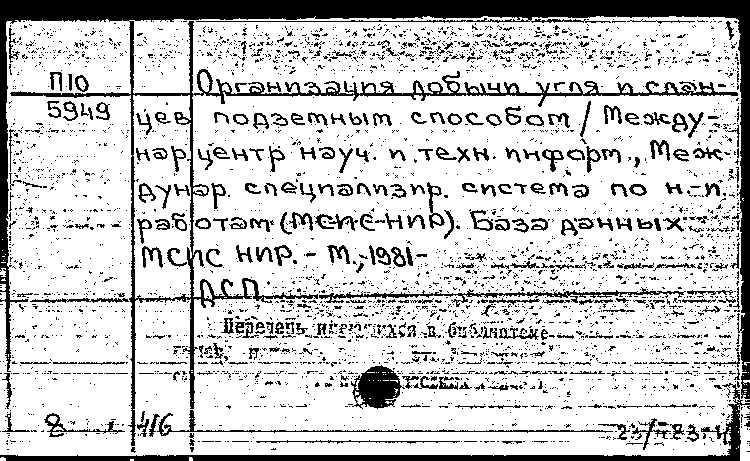 П10
5949
Организация добычи угля и слан-
цев подземным способом / Между-
нар. центр науч. и техн. информ., Меж-
дунар. специализир. система по н.-и.
работам (МСИС НИР). База данных
МСИС НИР. - М., 1981-
ДСП
Перечень имеющихся в библиотеке
8 416